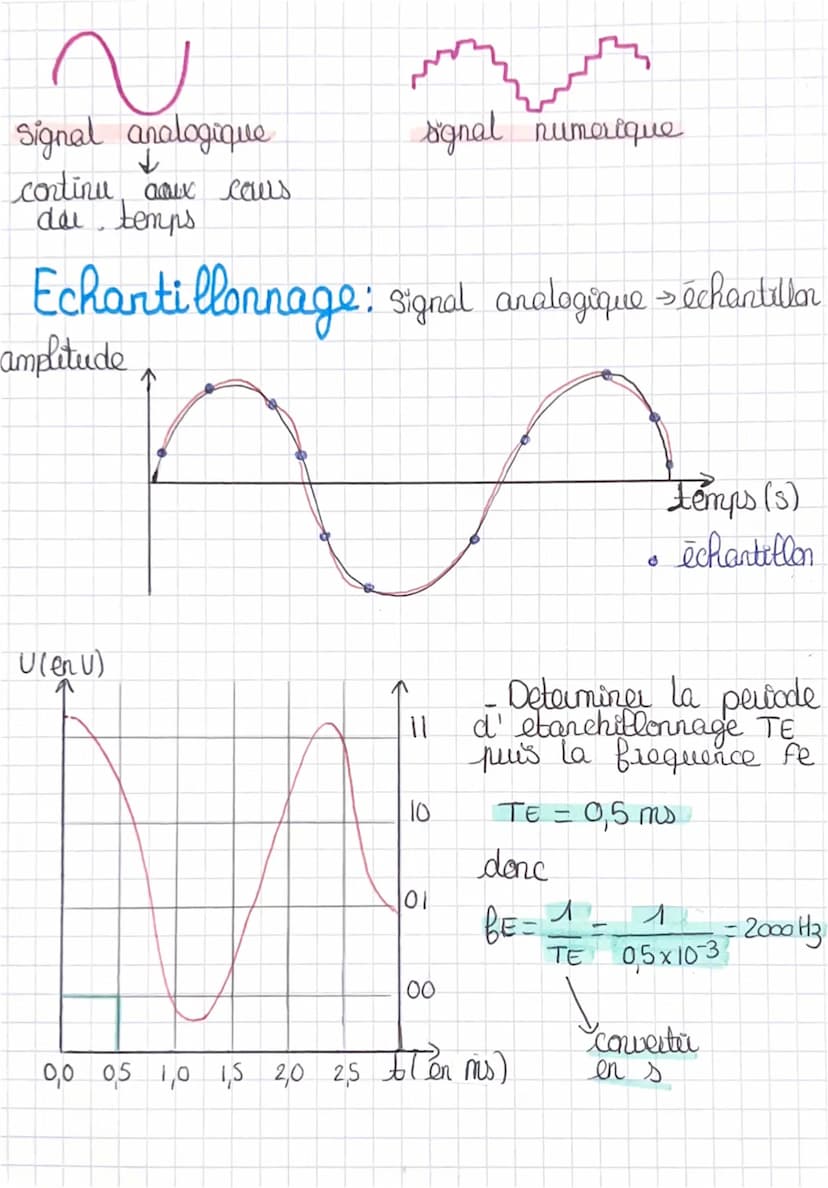 signal analogique
signal numerique
↓
continu aux cours
du temps
Echantillonnage: signal analogique → échantillon
amplitude
temps (s)
• échantillon
U(en V)
11
10
01
00
0,0 0,5 1,0 1,5 2,0 2,5 t(en ms)
- Determiner la periode
d' etanchillonnage TE
puis la frequence Fe
TE = 0,5 ms
donc
fE = 1/TE = 1/0,5x10⁻³ = 2000 Hz
convertir
en s